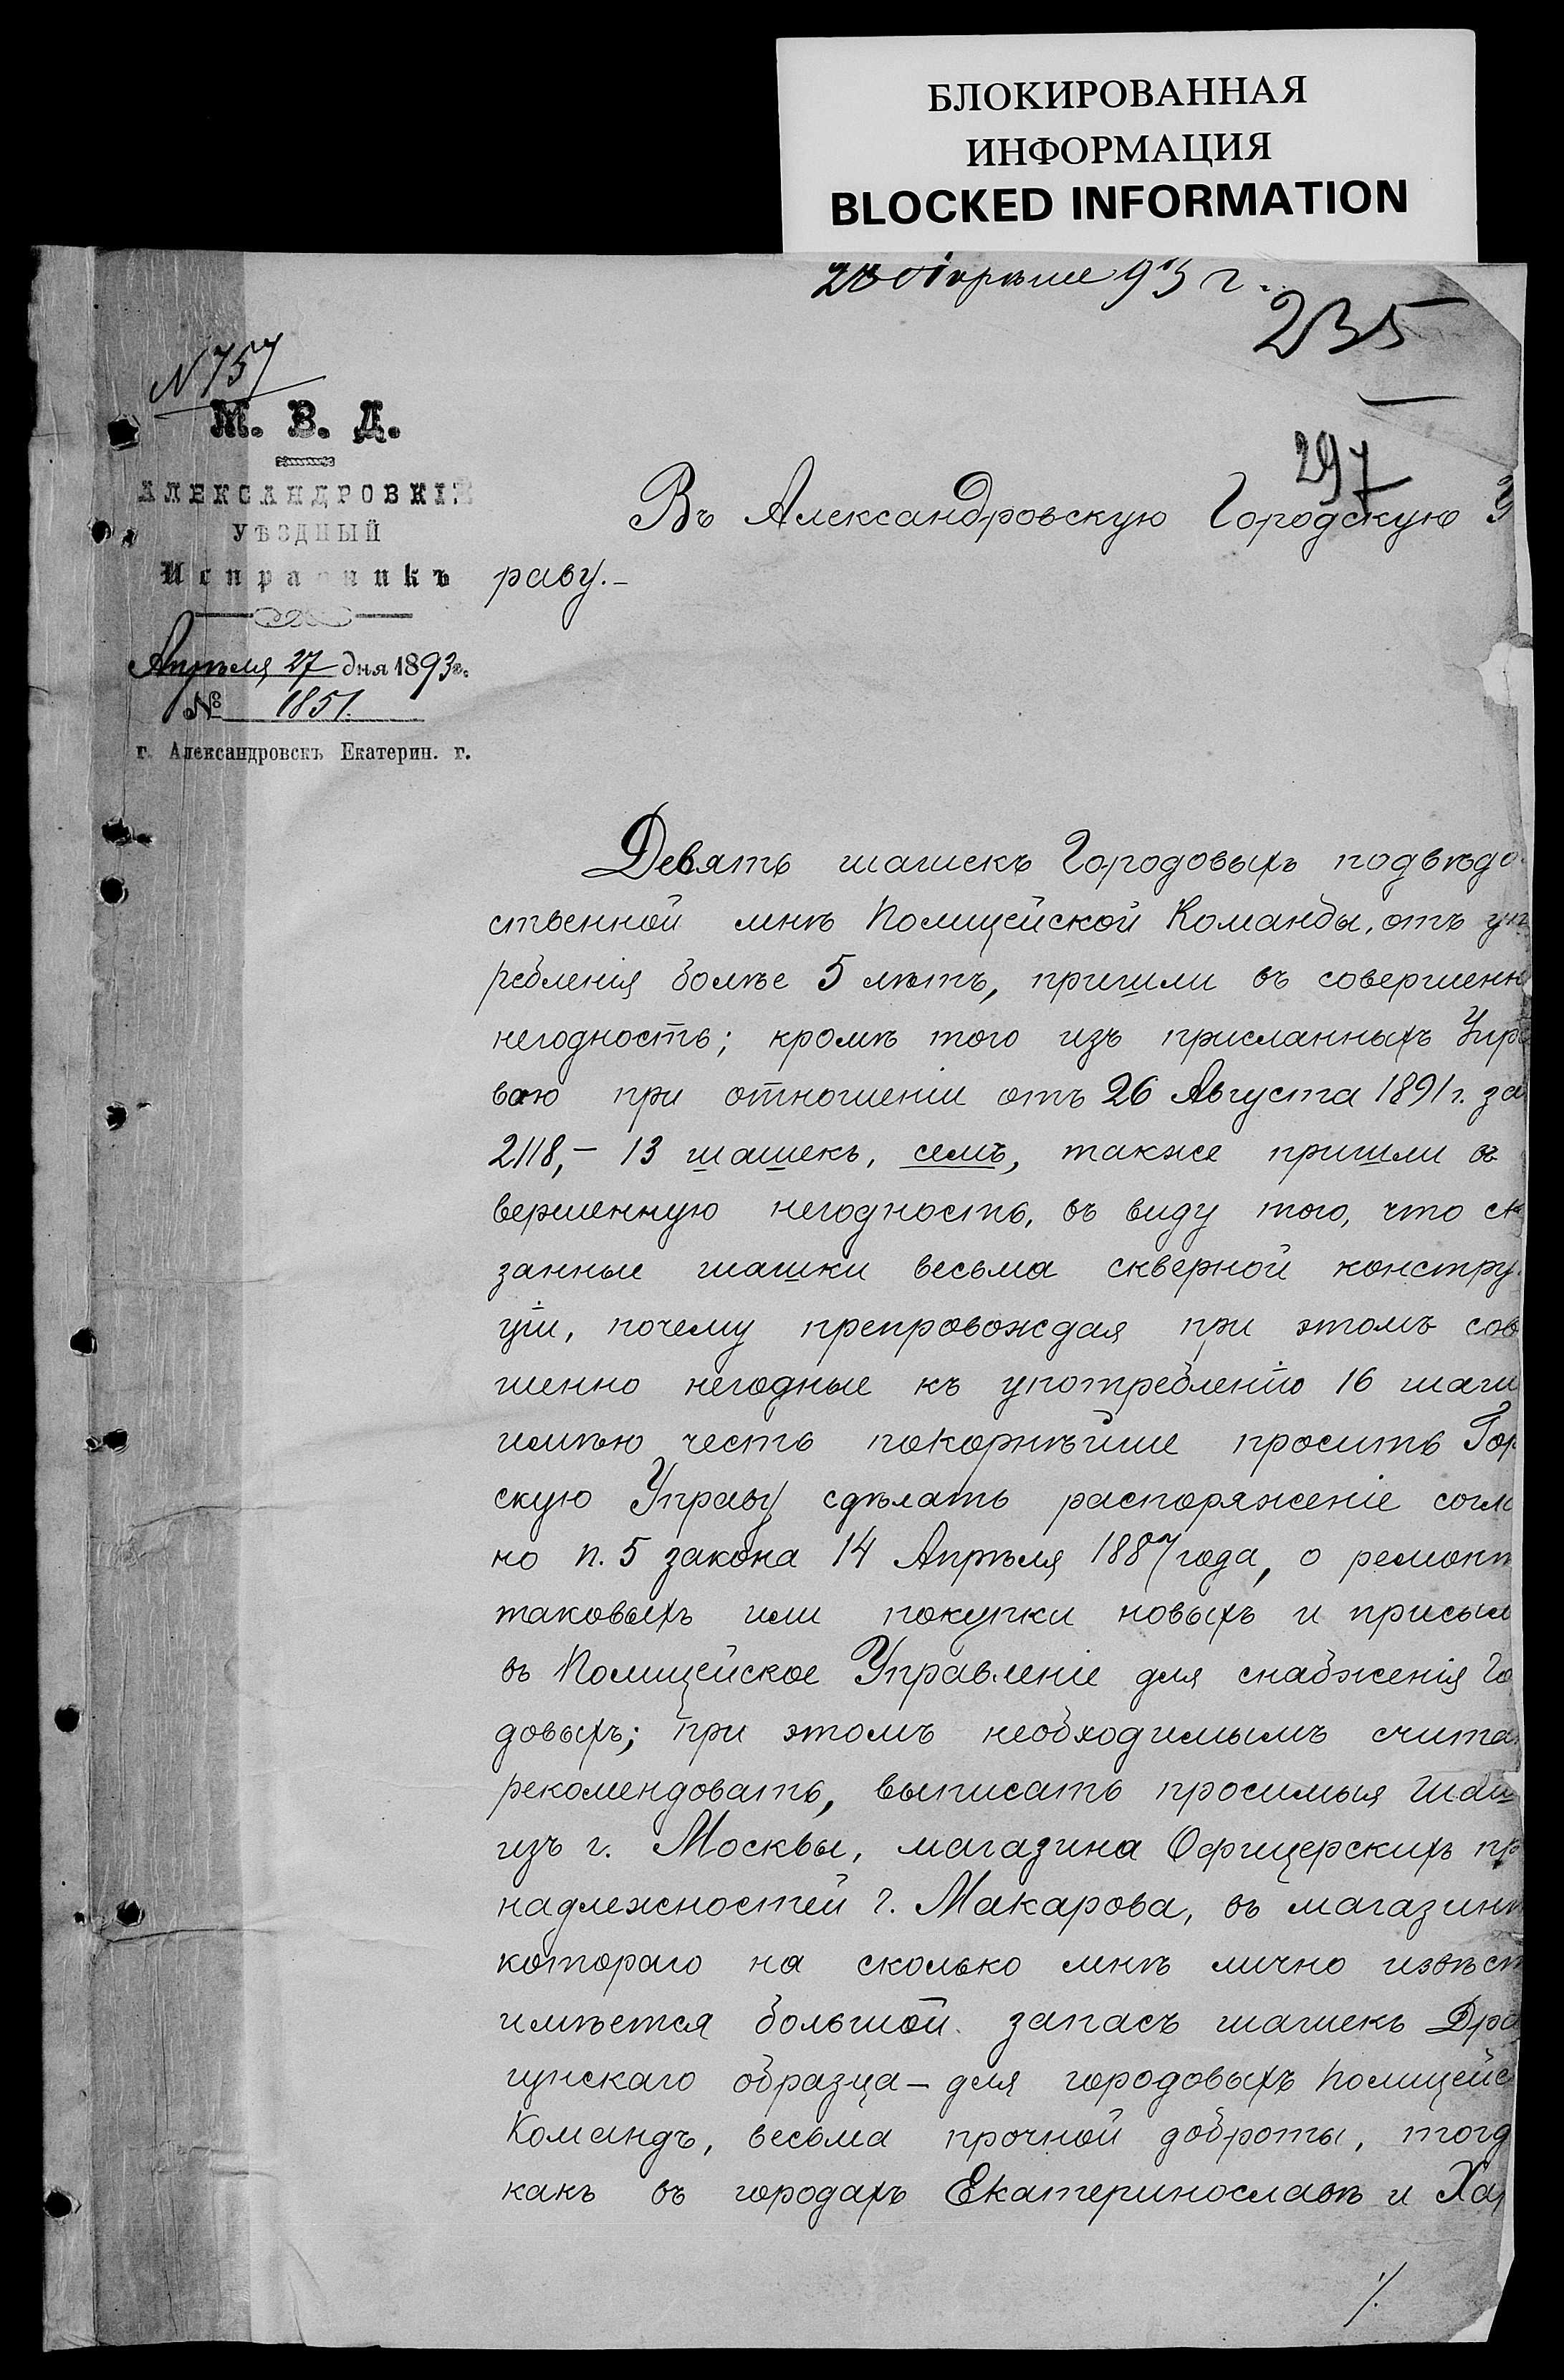 БЛОКИРОВАННАЯ
ИНФОРМАЦИЯ
BLOCKED INFORMATION
28 Апрѣля 93 г.
235
N 757
297
М. В. Д.
АЛЕКСАНДРОВКІЙ
УѢЗДНЫЙ
Исправникъ
Апрѣля 27 дня 1893 г.
№ 1851.
г. Александровскъ Екатерин. г.
Въ Александровскую Городскую У
раву.–
Девять шашекъ Городовыхъ подвѣдо
ственной мнѣ Полицейской Команды, отъ уп
ребленія болѣе 5 лѣтъ, пришли въ совершенн
негодность; кромѣ того изъ присланныхъ Упра
вою при отношеніи отъ 26 Августа 1891 г. за
2118,– 13 шашекъ, семь, также пришли въ
вершенную негодность, въ виду того, что ск
занные шашки весьма скверной констру
ціи, почему препровождая при этомъ сов
шенно негодные къ употребленію 16 шаш
имѣю честь покорнѣйше просить Гор
скую Управу сдѣлать распоряженіе согла
но п. 5 закона 14 Апрѣля 1887 года, о ремонт
таковыхъ или покупки новыхъ и присыл
въ Полицейское Управленіе для снабженія Го
довыхъ; при этомъ необходимымъ счита
рекомендовать, выписать просимыя шаш
изъ г. Москвы, магазина Офицерскихъ пр
надлежностей г. Макарова, въ магазинѣ
котораго на сколько мнѣ лично извѣст
имѣется большой запасъ шашекъ Дра
гунскаго образца – для городовыхъ Полицейс
Командъ, весьма прочной доброты, тогд
какъ въ городахъ Екатеринославѣ и Хар
./.